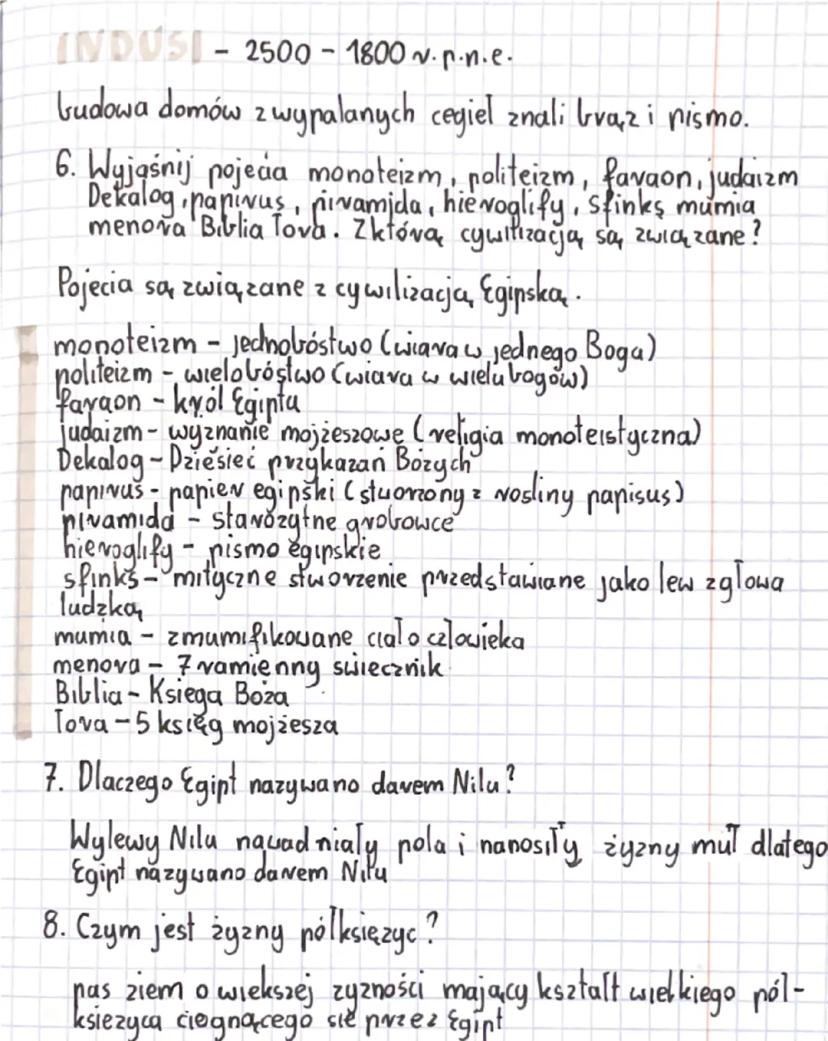 INDUSI - 2500 - 1800 r.p.n.e.
budowa domów z wypalanych cegieł znali brąz i pismo.
6. Wyjaśnij pojęcia monoteizm, politeizm, faraon, judaizm
Dekalog, papirus, piramida, hieroglify, sfinks mumia
menora Biblia Tora. Z którą cywilizacją są związane?
Pojęcia są związane z cywilizacją Egipską.
monoteizm - jednobóstwo (wiara w jednego Boga)
politeizm - wielobóstwo (wiara w wielu bogów)
faraon - król Egiptu
judaizm - wyznanie mojżeszowe (religia monoteistyczna)
Dekalog - Dziesięć przykazań Bożych
papirus - papier egipski (stworzony z rośliny papisus)
piramida - starożytne grobowce
hieroglify - pismo egipskie
sfinks - mityczne stworzenie przedstawiane jako lew z głową
ludzką
mumia - zmumifikowane ciało człowieka
menora - 7 ramienny świecznik
Biblia - Księga Boża
Tora - 5 księg mojżesza
7. Dlaczego Egipt nazywano darem Nilu?
Wylewy Nilu nawadniały pola i nanosiły żyzny muł dlatego
Egipt nazywano darem Nilu
8. Czym jest żyzny półksiężyc?
pas ziem o wiekszej zyzności mający kształt wielkiego pół-
ksiezyca ciągnącego sie przez Egipt